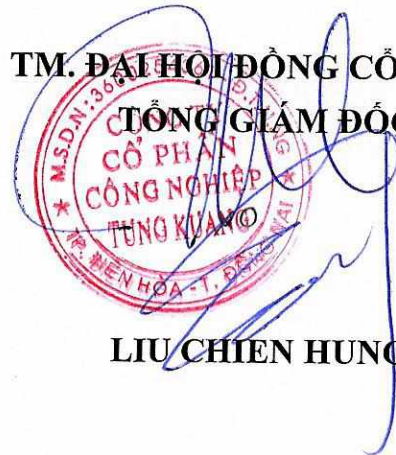 TM. ĐẠI HỘI ĐỒNG CỔ
TỔNG GIÁM ĐỐC
M.S.D.N:
CÔNG TY
CỔ PHẦN
CÔNG NGHIỆP
TUNG KUANG
TP. BIÊN HÒA - T. ĐỒNG NAI
LIU CHIEN HUNG